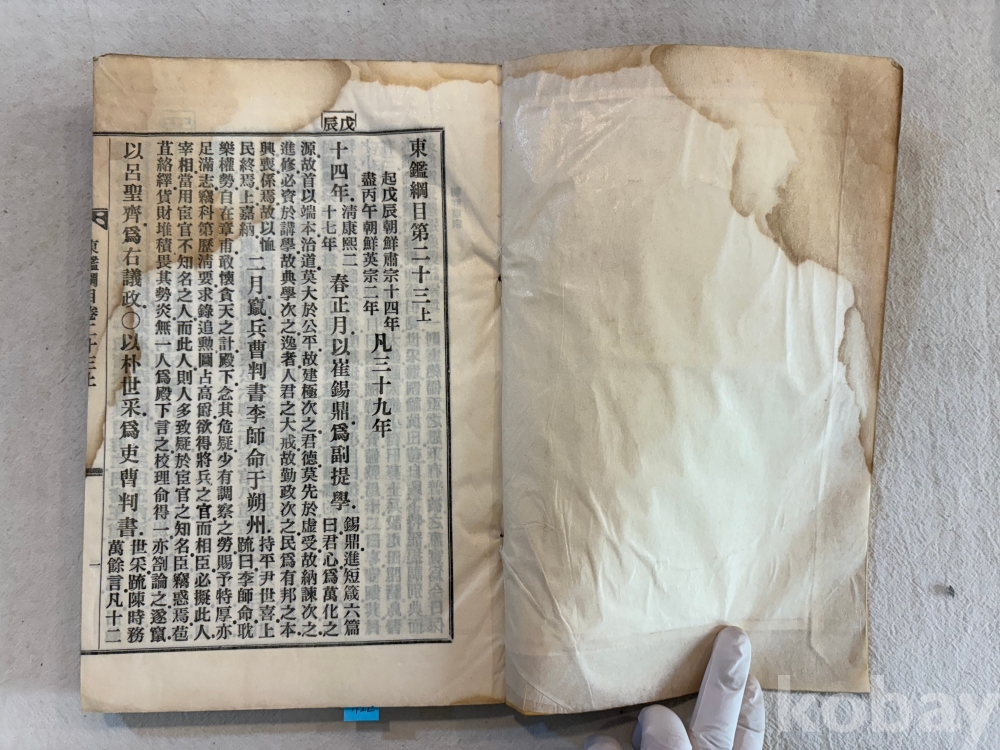 戊辰
東鑑綱目第二十三上
起戊辰朝鮮肅宗十四年
盡丙午朝鮮英宗二年
凡三十九年
十四年
淸康熙二
十七年
春正月以崔錫鼎爲副提學
錫鼎進短箴六篇
曰君心爲萬化之
源故首以端本治道莫大於公平故建極次之君德莫先於虛受故納諫次之
進修必資於講學故典學次之逸者人君之大戒故勤政次之民爲有邦之本
興喪係焉故以恤
民終焉上嘉納
二月竄兵曹判書李師命于朔州
持平尹世喜上
疏曰李師命耽
樂權勢自在章甫敢懷貪天之計殿下念其危疑少有調察之勞賜予特厚亦
足滿志竊科第歷淸要求錄追勳圖占高爵欲得將兵之官而相臣必擬此人
宰相當用宦官不知名之人而此人則人多致疑於宦官之知名臣竊惑焉苞
苴絡繹貨財堆積畏其勢炎無一人爲殿下言之校理俞得一亦劄論之遂竄
以呂聖齊爲右議政〇以朴世采爲吏曹判書
世采疏陳時務
萬餘言凡十二
東鑑綱目卷二十三上
一
kobay